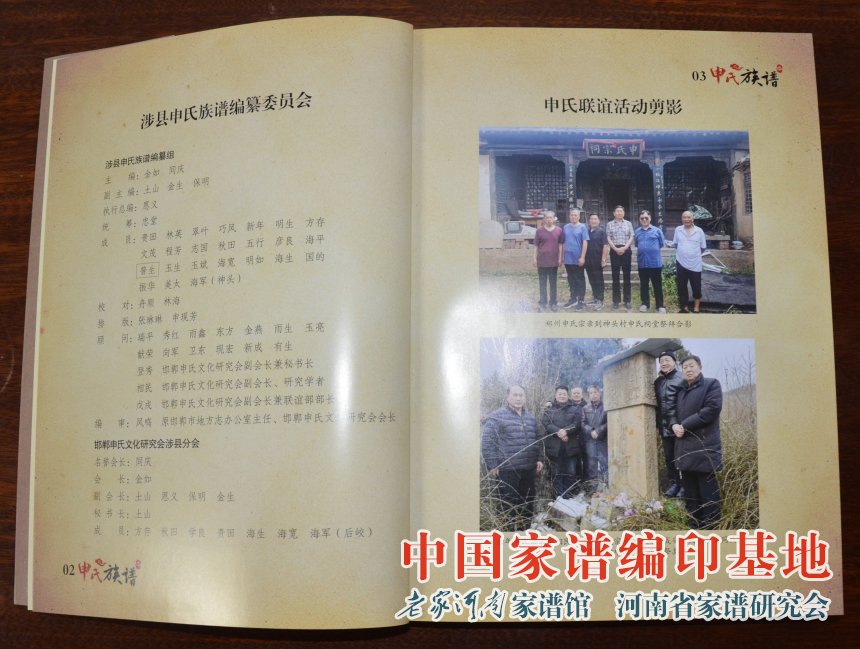 涉县申氏族谱编纂委员会
涉县申氏族谱编纂组
主 编：金如 同庆
副主编：土山 金生 保明
执行总编：恩义
统 筹：忠堂
成 员：贵田 林英 翠叶 巧凤 新年 明生 方存
文茂 程芳 志国 秋田 五行 彦良 海平
晋生 玉生 玉斌 海宽 明如 海生 国的
振华 美太 海军（神头）
校 对：舟顺 林海
排 版：张琳琳 申现芳
顾 问：瑞平 秀红 雨鑫 东方 金燕 雨生 玉亮
献荣 向军 卫东 现宏 新成 有生
登秀 邯郸申氏文化研究会副会长兼秘书长
相民 邯郸申氏文化研究会副会长、研究学者
戊戌 邯郸申氏文化研究会副会长兼联谊部部长
编 审：风鸣 原邯郸市地方志办公室主任、邯郸申氏文化研究会会长
邯郸申氏文化研究会涉县分会
名誉会长：同庆
会 长：金如
副会长：土山 恩义 保明 金生
秘书长：土山
成 员：方存 秋田 学良 贵田 海生 海宽 海军（后岐）
02 申氏族谱
03 申氏族谱
申氏联谊活动剪影
申氏宗祠
郑州申氏宗亲到神头村申氏祠堂祭拜合影
中国家谱编印基地
老家河南家谱馆 河南省家谱研究会